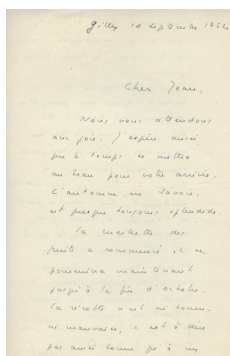 Gilly 10 septembre 1952
Cher Jean,
Nous vous attendons
avec joie. J'espère aussi
que le temps se mettra
au beau pour votre arrivée.
L'automne en Savoie,
est presque toujours splendide.
La cueillette des
fruits a commencé il se
poursuivra maintenant
jusqu'à la fin d'octobre.
La récolte n'est ni bonne,
ni mauvaise, c'est à dire
pas aussi bonne qu'à